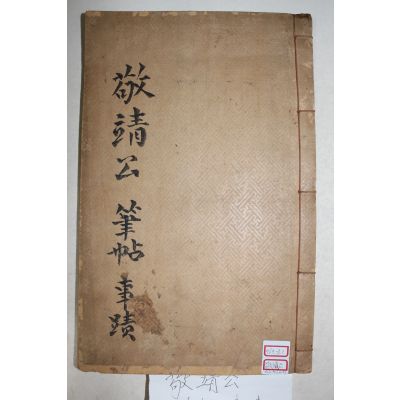 敬靖公 筆帖 事蹟
敬靖公